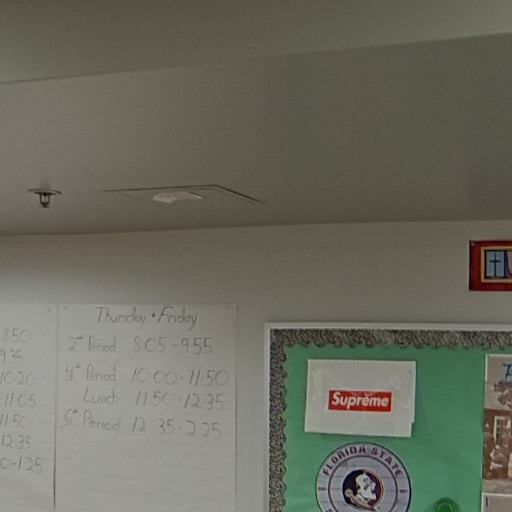 850
935
1020
-1105
1150
1235
0-125
Thursday • Friday
2nd Period 8:05-9:55
4th Period 10:00-11:50
Lunch 11:50-12:35
6th Period 12:35-2:25
Supreme
FLORIDA STATE